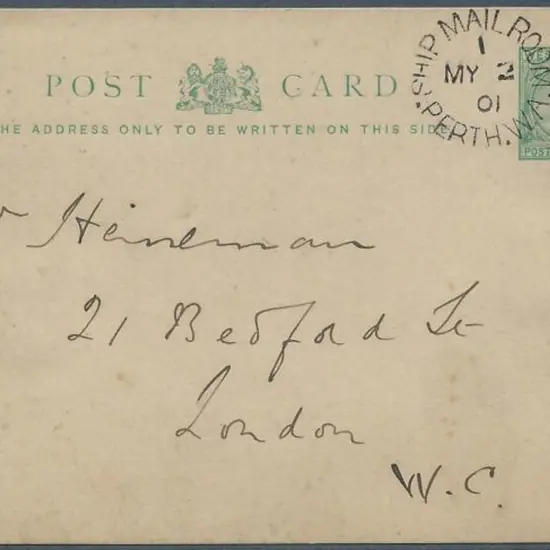 POST CARD
THE ADDRESS ONLY TO BE WRITTEN ON THIS SIDE
SHIP MAIL ROOM
1
MY 2
01
PERTH. W.A.
POST
Heineman
21 Bedford St
London
W.C.